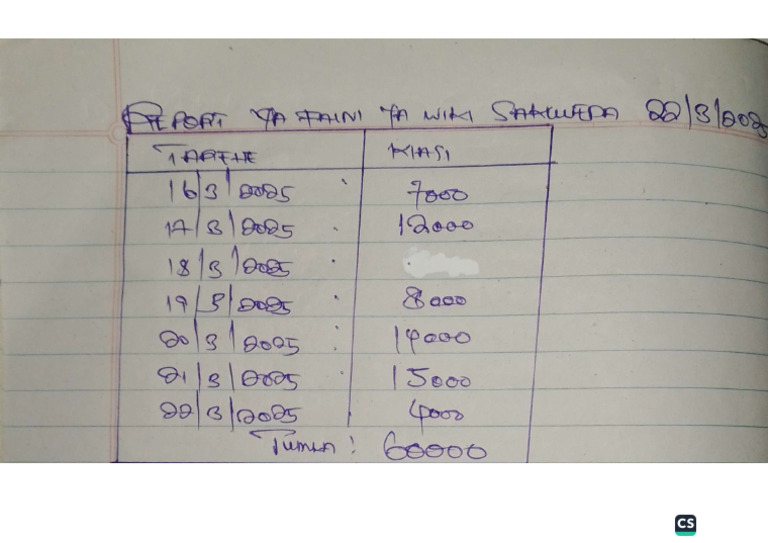 REPORT YA FAINI YA WIKI SAKWEDA 22/3/2025
TAREHE KIASI
16/3/2025 7000
17/3/2025 12000
18/3/2025
19/3/2025 8000
20/3/2025 14000
21/3/2025 15000
22/3/2025 4000
Jumla: 60000
CS